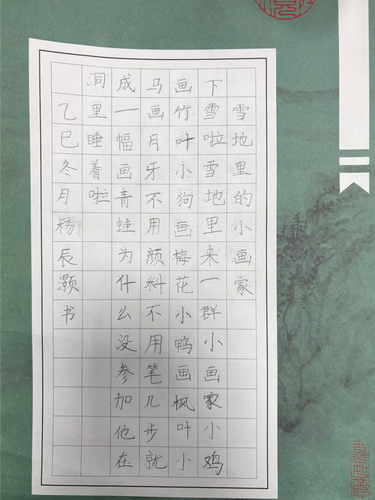 雪地里的小画家
下雪啦雪地里来一群小画家小鸡
画竹叶小狗画梅花小鸭画枫叶小
马画月牙不用颜料不用笔几步就
成一幅画青蛙为什么没参加他在
洞里睡着啦
乙巳冬月杨辰灏书